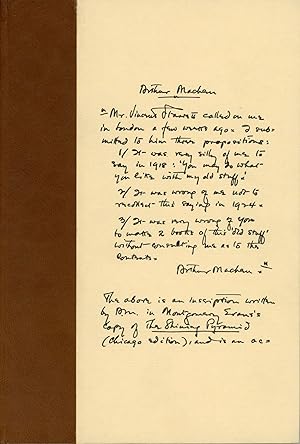 Arthur Machen
"Mr. Vincent Starrett called on me
in London a few weeks ago. I sub-
mitted to him three propositions:
1/ It was very silly of me to
say in 1918: 'You may do what
you like with my old stuff.'
2/ It was wrong of me not to
recollect this saying in 1924.
3/ It was very wrong of you
to make 2 books of this 'old stuff'
without consulting me as to the
contents.
Arthur Machen."
The above is an inscription written
by Am. in Montgomery Evans's
copy of The Shining Pyramid
(Chicago edition), and is an ac-